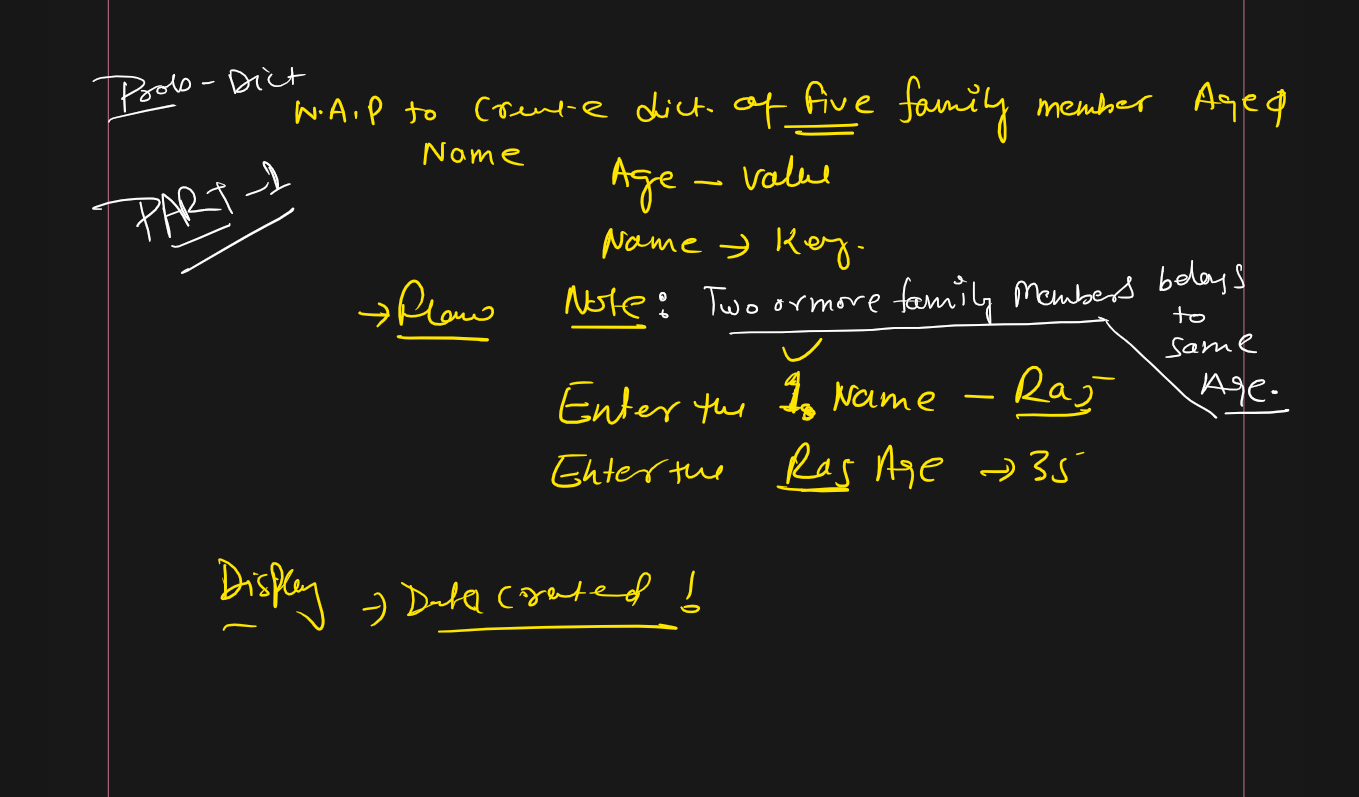 Prob - Dict
W.A.P to Create dict. of five family member Age &
Name
PART-1
Age - Value
Name → Key.
→ Plano
Note: Two or more family Members belogs
to
same
Age.
Enter the 1. Name - Raj
Enter the Raj Age → 35
Display → Data created !